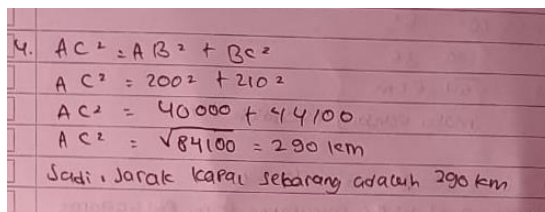 4. AC² = AB² + BC²
AC² = 200² + 210²
AC² = 40000 + 44100
AC² = √84100 = 290 km
Jadi, Jarak kapal sekarang adalah 290 km